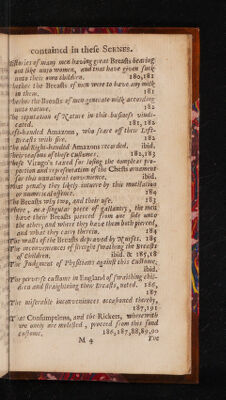 contained in these SCENES.
Histories of many men having great Breasts bearing
out like unto women, and that have given suck
unto their own children. 180,181
Whether the Breasts of men were to have any milk
in them. 181
Whether the Breasts of men generate milk according
unto nature. 182
The reputation of Nature in this business vindi-
cated. 181, 182
Left-handed Amazons, who seare off their Left-
Breasts with fire. 182
The old Right-handed Amazons recorded. ibid.
Their reasons of these customes. 182,183
These Virago's taxed for losing the compleat pro-
portion and representation of the Chests ornament
for this unnatural convenience. ibid.
What penalty they likely incurre by this mutilation
or numerical offence. 184
The Breasts why two, and their use. 183
Where, as a singular piece of gallantry, the men
have their Breasts pierced from one side unto
the other, and where they have them both pierced,
and what they carry therein. 184
The wasts of the Breasts depraved by Nurses. 185
The inconveniencies of streight swathing the breasts
of Children. ibid. & 185,18
The Judgment of Physitians against this Custome.
ibid.
The perverse custome in England of swathing chil-
dren and straightning their Breasts, noted. 186,
187
The miserable inconveniences occasioned thereby,
187,191
That Consumptions, and the Rickets, wherewith
we onely are molested, proceed from this fond
custome. 186,187,88,89,90
M 4 The